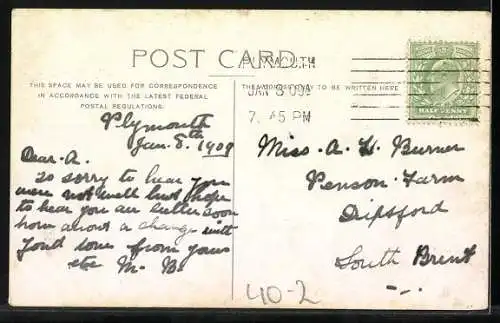 POST CARD
THIS SPACE MAY BE USED FOR CORRESPONDENCE
IN ACCORDANCE WITH THE LATEST FEDERAL
POSTAL REGULATIONS.
PLYMOUTH
JAN 8 09
7. 45 PM
TO BE WRITTEN HERE
HALF PENNY
Plymouth
Jan. 8th 1909
Dear A.
so sorry to hear you
were not well but hope
to hear you are better soon
how about a change with
fond love from yours
etc M. B.
Miss A. H. Burner
Penson Farm
South Brent
40-2